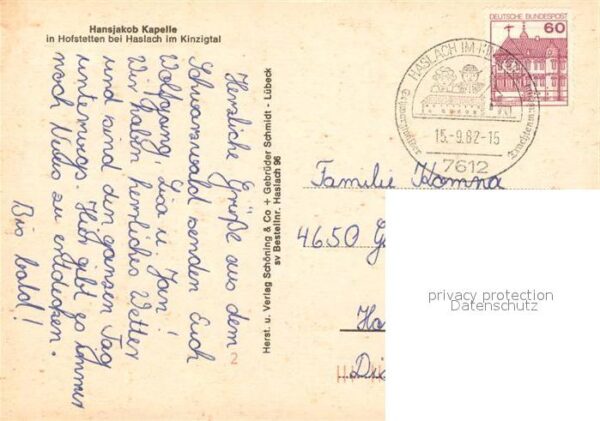 Hansjakob Kapelle
in Hofstetten bei Haslach im Kinzigtal
Herzliche Grüße aus dem
Schwarzwald senden Euch
Wolfgang, Lisa u. Jan!
Wir haben herrliches Wetter
und sind den ganzen Tag
unterwegs. Hier gibt es immer
noch Neues zu entdecken.
Bis bald!
Herst. u. Verlag Schöning & Co + Gebrüder Schmidt - Lübeck
sv Bestellnr. Haslach 96
DEUTSCHE BUNDESPOST
60
HASLACH IM
15.-9.82-15
7612
Familie
4650 G
Ha
Die
2
privacy protection
Datenschutz